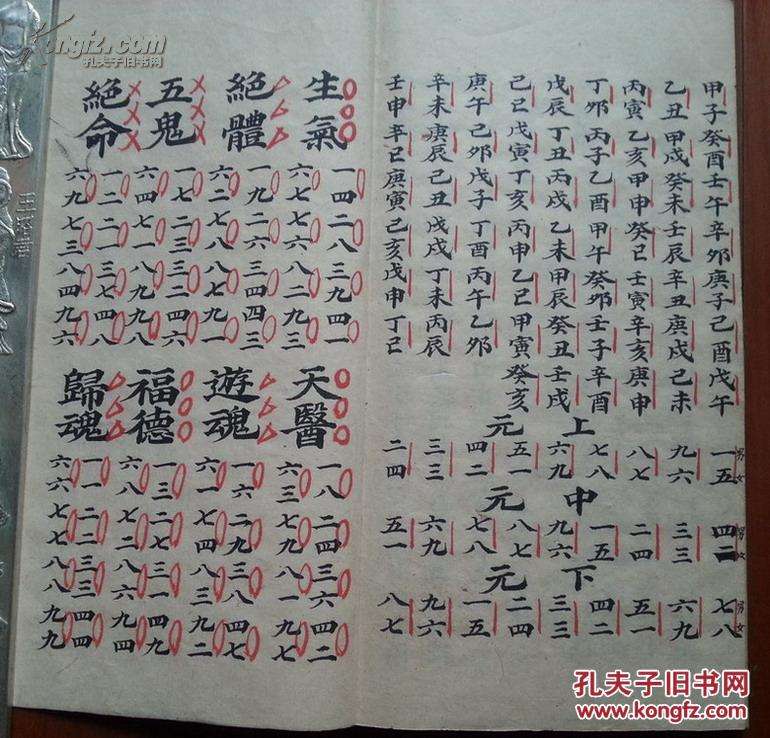 甲子癸酉壬午辛卯庚子己酉戊午
乙丑甲戌癸未壬辰辛丑庚戌己未
丙寅乙亥甲申癸巳壬寅辛亥庚申
丁卯丙子乙酉甲午癸卯壬子辛酉
戊辰丁丑丙戌乙未甲辰癸丑壬戌
己巳戊寅丁亥丙申乙巳甲寅癸亥
庚午己卯戊子丁酉丙午乙卯
辛未庚辰己丑戊戌丁未丙辰
壬申辛巳庚寅己亥戊申丁巳
上元
男女
一五
九六
八七
七八
六九
五一
四二
三三
二四
中元
男女
四二
三三
二四
一五
九六
八七
七八
六九
五一
下元
男女
七八
六九
五一
四二
三三
二四
一五
九六
八七
生氣
一四二八三九四一
六七七六八二九三
絕體
一九二六三四四三
六二七八八七九一
五鬼
一七二三三二四六
六四七一八九九八
絕命
一二二一三七四八
六九七三八四九六
天醫
一八二四三六四二
六三七九八一九七
遊魂
一六二九三八四七
六一七四八三九二
福德
二七三一四九
六八七二八六
歸魂
一一二二三三四四
六六七七八八九九
kongfz.com
孔夫子旧书网
孔夫子旧书网
www.kongfz.com